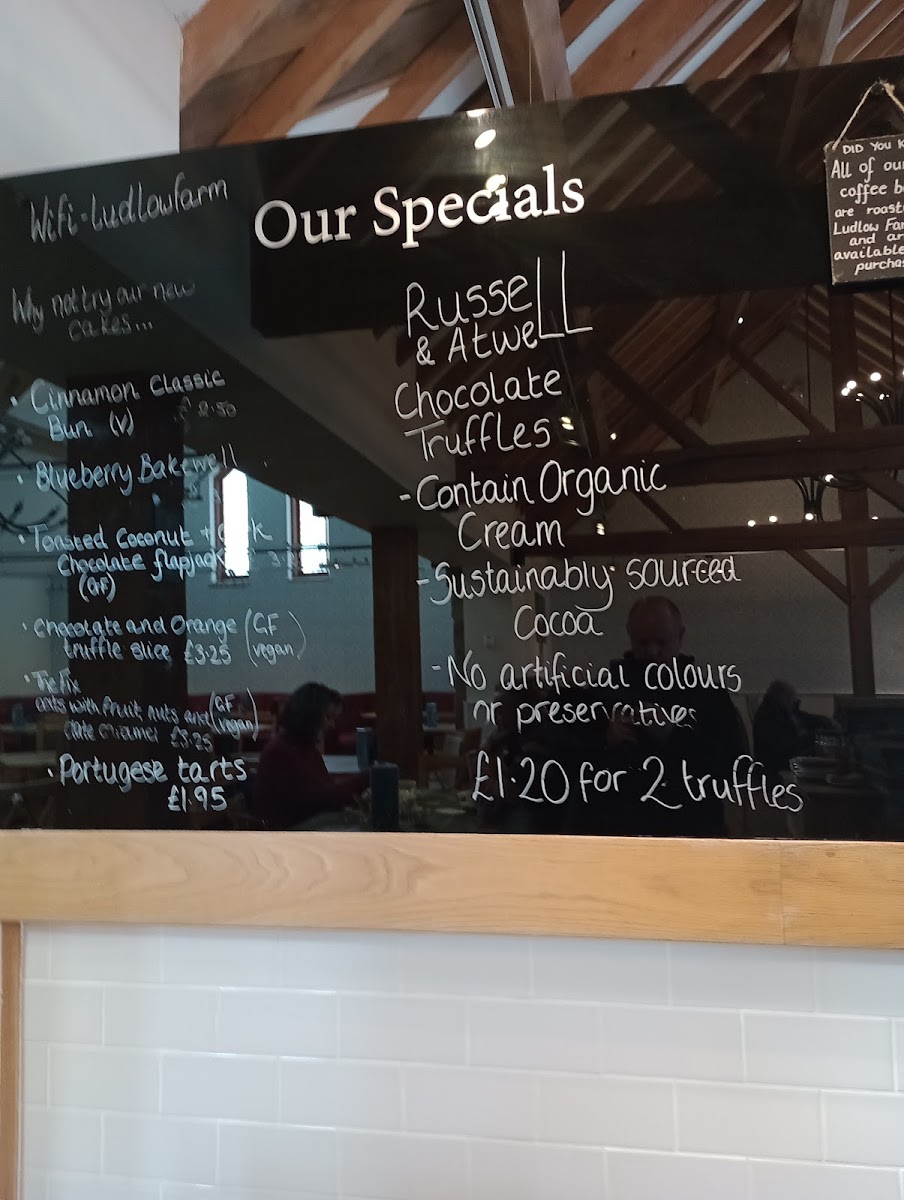 Wifi-Ludlowfarm
Our Specials
Why not try our new
cakes...
• Cinnamon Classic
Bun (V) £2.50
• Blueberry Bakewell
• Toasted Coconut +
Chocolate flapjack
(GF)
• Chocolate and Orange (GF
truffle slice, £3.25 vegan)
oats with fruit nuts and (GF
£3.25 vegan)
• Portugese tarts
£1.95
Russell
& Atwell
Chocolate
Truffles
- Contain Organic
Cream
- Sustainably sourced
Cocoa
- No artificial colours
or preservatives
£1.20 for 2 truffles
DID YOU K
All of our
coffee b
are roast
Ludlow Far
and ar
available
purchas